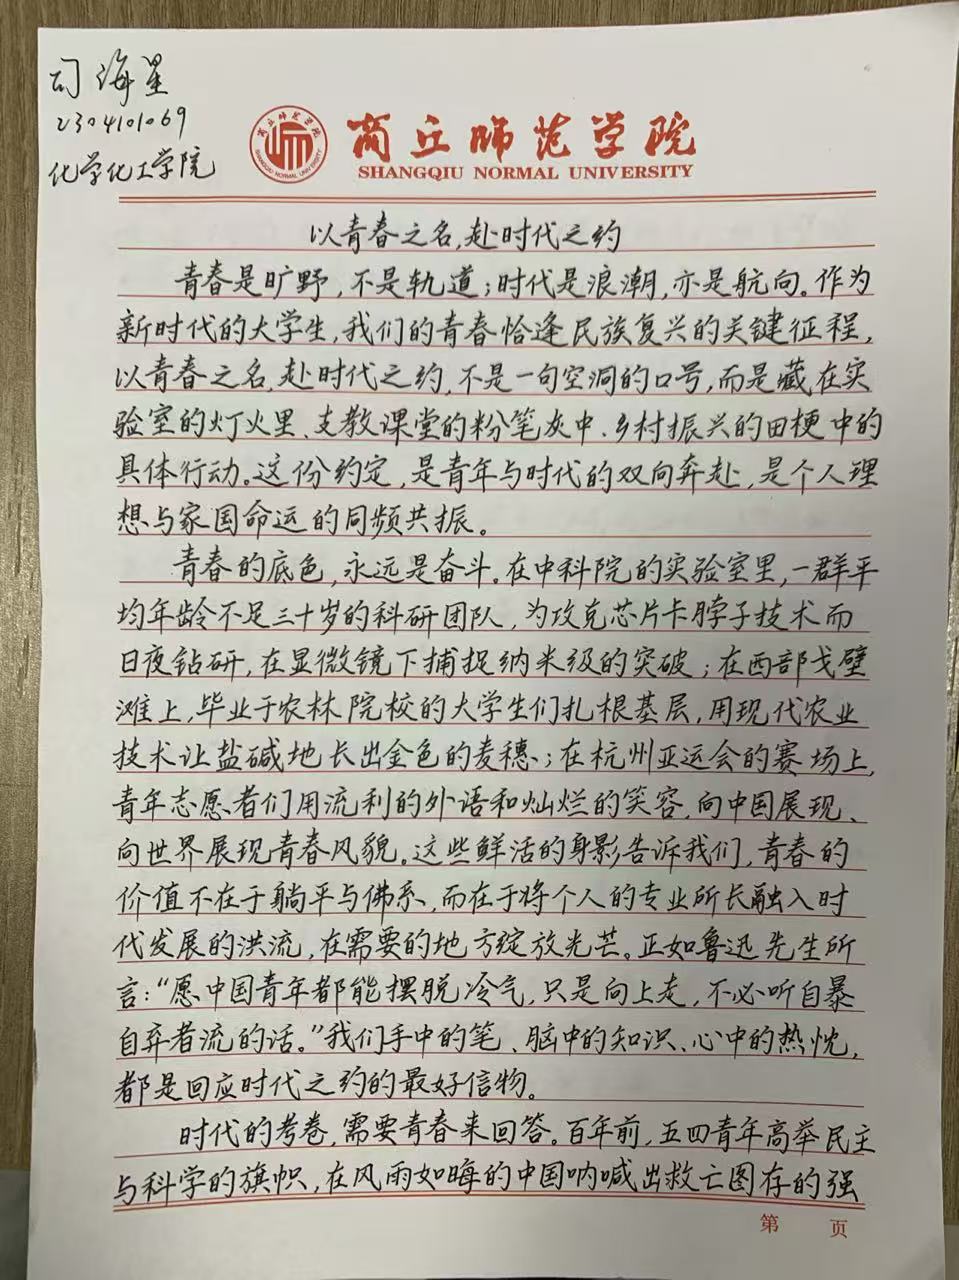 司海星
2304101069
化学化工学院
商丘师范学院
SHANGQIU NORMAL UNIVERSITY
以青春之名,赴时代之约
青春是旷野,不是轨道;时代是浪潮,亦是航向。作为
新时代的大学生,我们的青春恰逢民族复兴的关键征程,
以青春之名,赴时代之约,不是一句空洞的口号,而是藏在实
验室的灯火里、支教课堂的粉笔灰中、乡村振兴的田梗中的
具体行动。这份约定,是青年与时代的双向奔赴,是个人理
想与家国命运的同频共振。
青春的底色,永远是奋斗。在中科院的实验室里,一群平
均年龄不足三十岁的科研团队,为攻克芯片卡脖子技术而
日夜钻研,在显微镜下捕捉纳米级的突破;在西部戈壁
滩上,毕业于农林院校的大学生们扎根基层,用现代农业
技术让盐碱地长出金色的麦穗;在杭州亚运会的赛场上,
青年志愿者们用流利的外语和灿烂的笑容,向中国展现、
向世界展现青春风貌。这些鲜活的身影告诉我们,青春的
价值不在于躺平与佛系,而在于将个人的专业所长融入时
代发展的洪流,在需要的地方绽放光芒。正如鲁迅先生所
言:“愿中国青年都能摆脱冷气,只是向上走,不必听自暴
自弃者流的话。”我们手中的笔、脑中的知识、心中的热忱,
都是回应时代之约的最好信物。
时代的考卷,需要青春来回答。百年前,五四青年高举民主
与科学的旗帜,在风雨如晦的中国呐喊出救亡图存的强
第 页